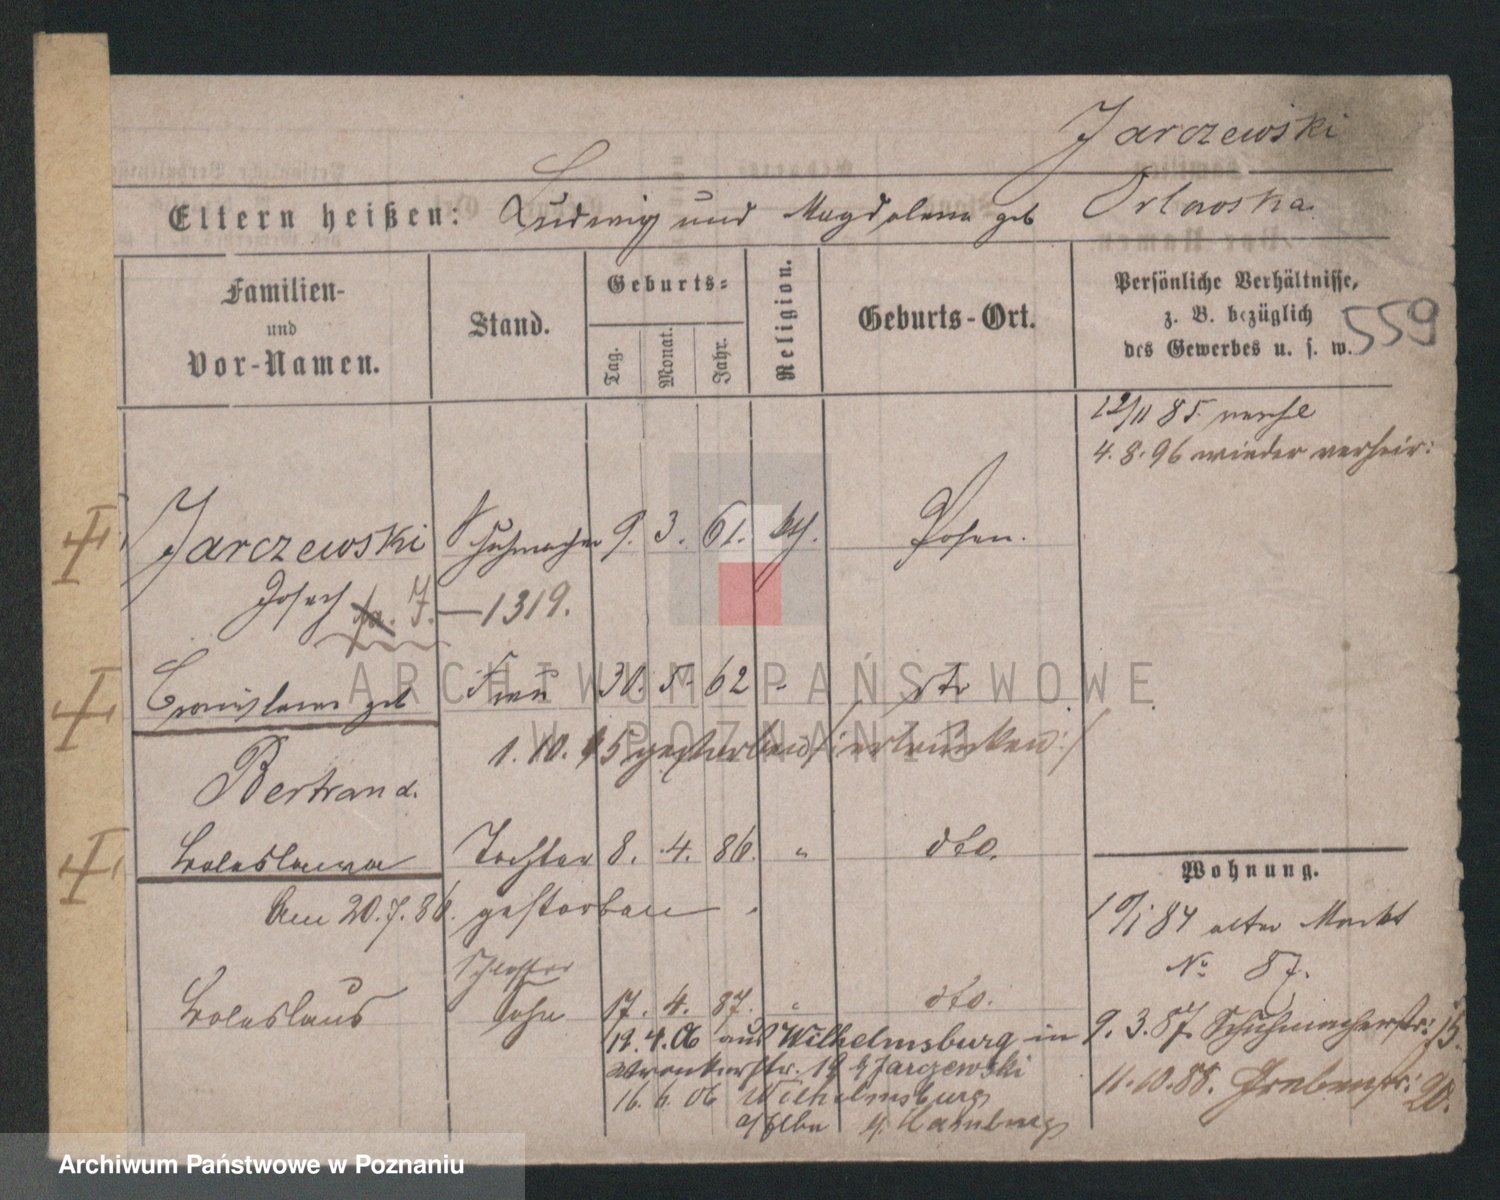 Jarczewski
Eltern heißen: Ludwig und Magdalena geb Orlowska
Familien- und Vor-Namen.
Stand.
Geburts-
Tag.
Monat.
Jahr.
Religion.
Geburts-Ort.
Persönliche Verhältnisse,
z. B. bezüglich
des Gewerbes u. s. w.
559
12/11 85 verehl
4. 8. 96 wieder verheir:
Jarczewski Schuhmacher 9. 3. 61. kth. Posen.
Josef J. — 1319.
Bronislawa geb Frau 30. 5. 62 " dto
1. 10. 95 gestorben /: ertrunken :/
Bertrand.
Boleslawa Tochter 8. 4. 86. " dto.
Am 20. 7. 86. gestorben.
Schlosser
Boleslaus Sohn 17. 4. 87. " dto.
19. 4. 06 aus Wilhelmsburg in
Wronkerstr. 19 b/ Jarczewski
16. 6. 06 Wilhelmsburg
a/Elbe Hamburg
Wohnung.
1 84 alter Markt
No 87.
9. 3. 87. Schuhmacherstr: 15.
11. 10. 88. Grabenstr: 20.
ARCHIWUM PAŃSTWOWE
W POZNANIU
Archiwum Państwowe w Poznaniu